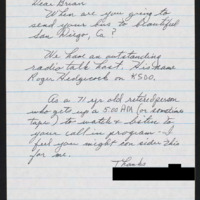 Dear Brian
When are you going to
send your bus to beautiful
San Diego, Ca?
We have an outstanding
radio talk host. His name
Roger Hedgecock on KSDO.
As a 71 yr old retired person
who gets up a 5:00 AM (or sometime
tapes) to watch & listen to
your call in program - I
feel you might consider this
for me.
Thanks